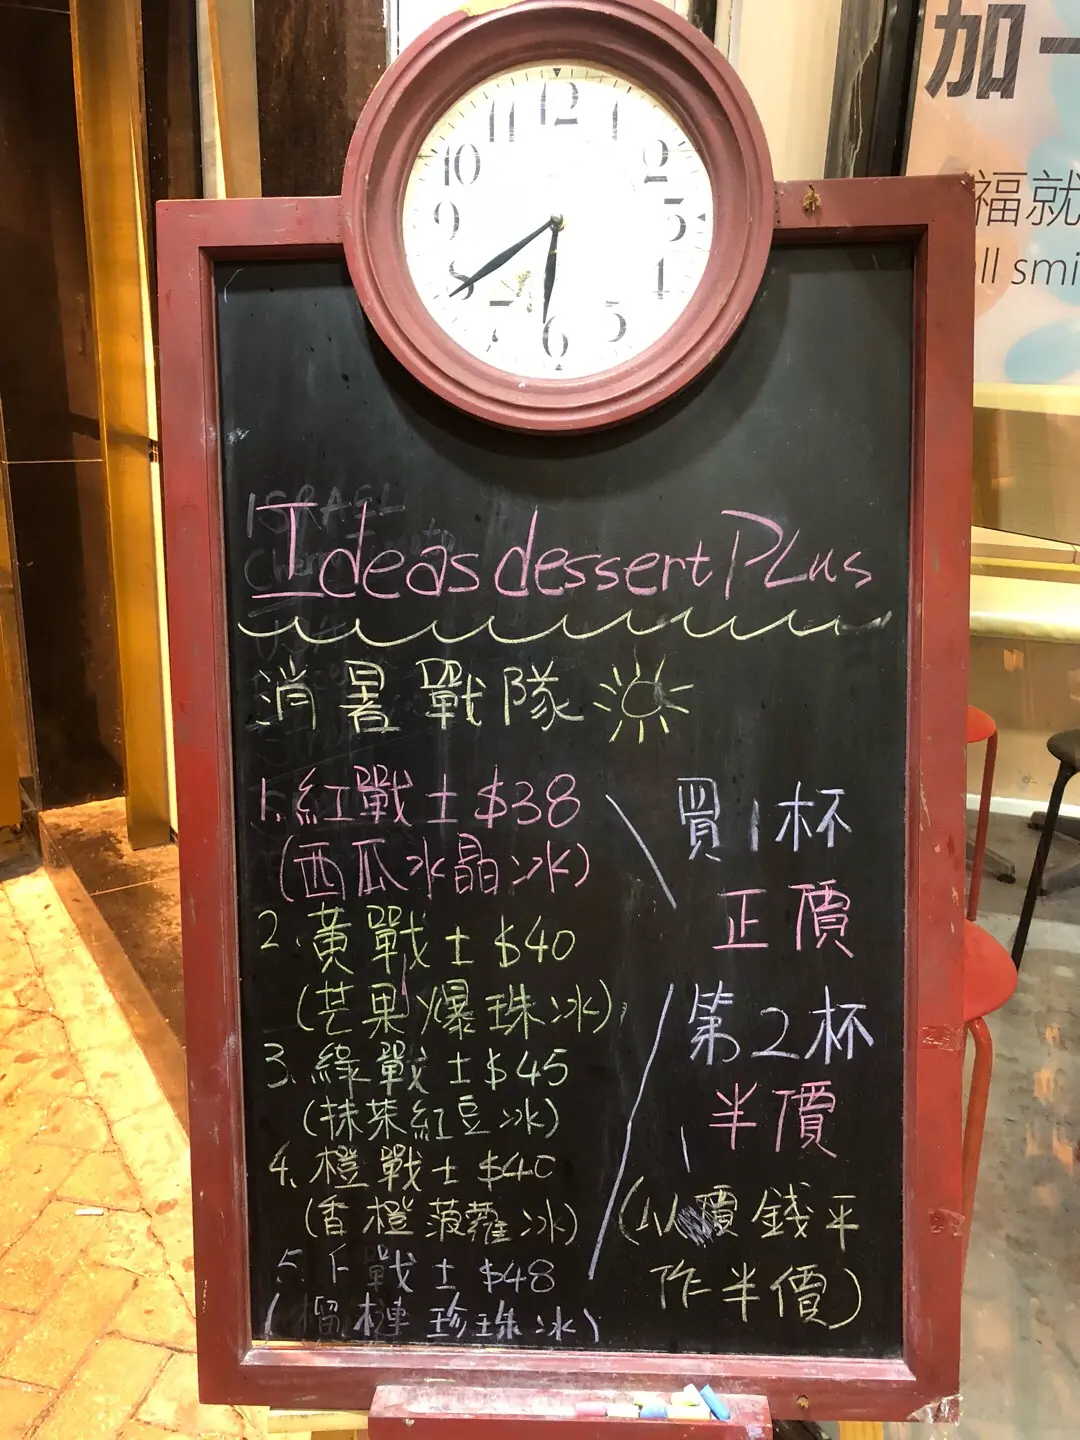 加一
福就
ll smi
12
11
1
10
2
9
3
8
4
7
5
6
ISRAEL
Ideas dessert PLus
消暑戰隊
1.紅戰士 $38
(西瓜水晶冰)
2.黃戰士 $40
(芒果爆珠冰)
3.綠戰士 $45
(抹茶紅豆冰)
4.橙戰士 $40
(香橙菠蘿冰)
5. 戰士 $48
(榴槤珍珠冰)
買1杯
正價
第2杯
半價
(以價錢平
作半價)